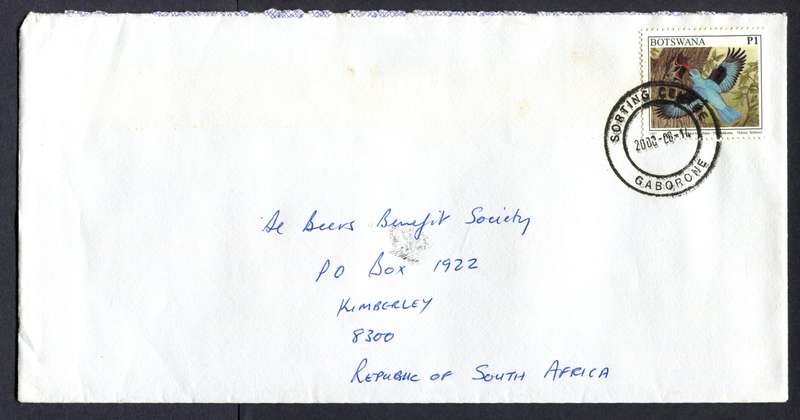 BOTSWANA P1
SORTING CENTRE
GABORONE
De Beers Benefit Society
PO Box 1922
KIMBERLEY
8300
REPUBLIC OF SOUTH AFRICA